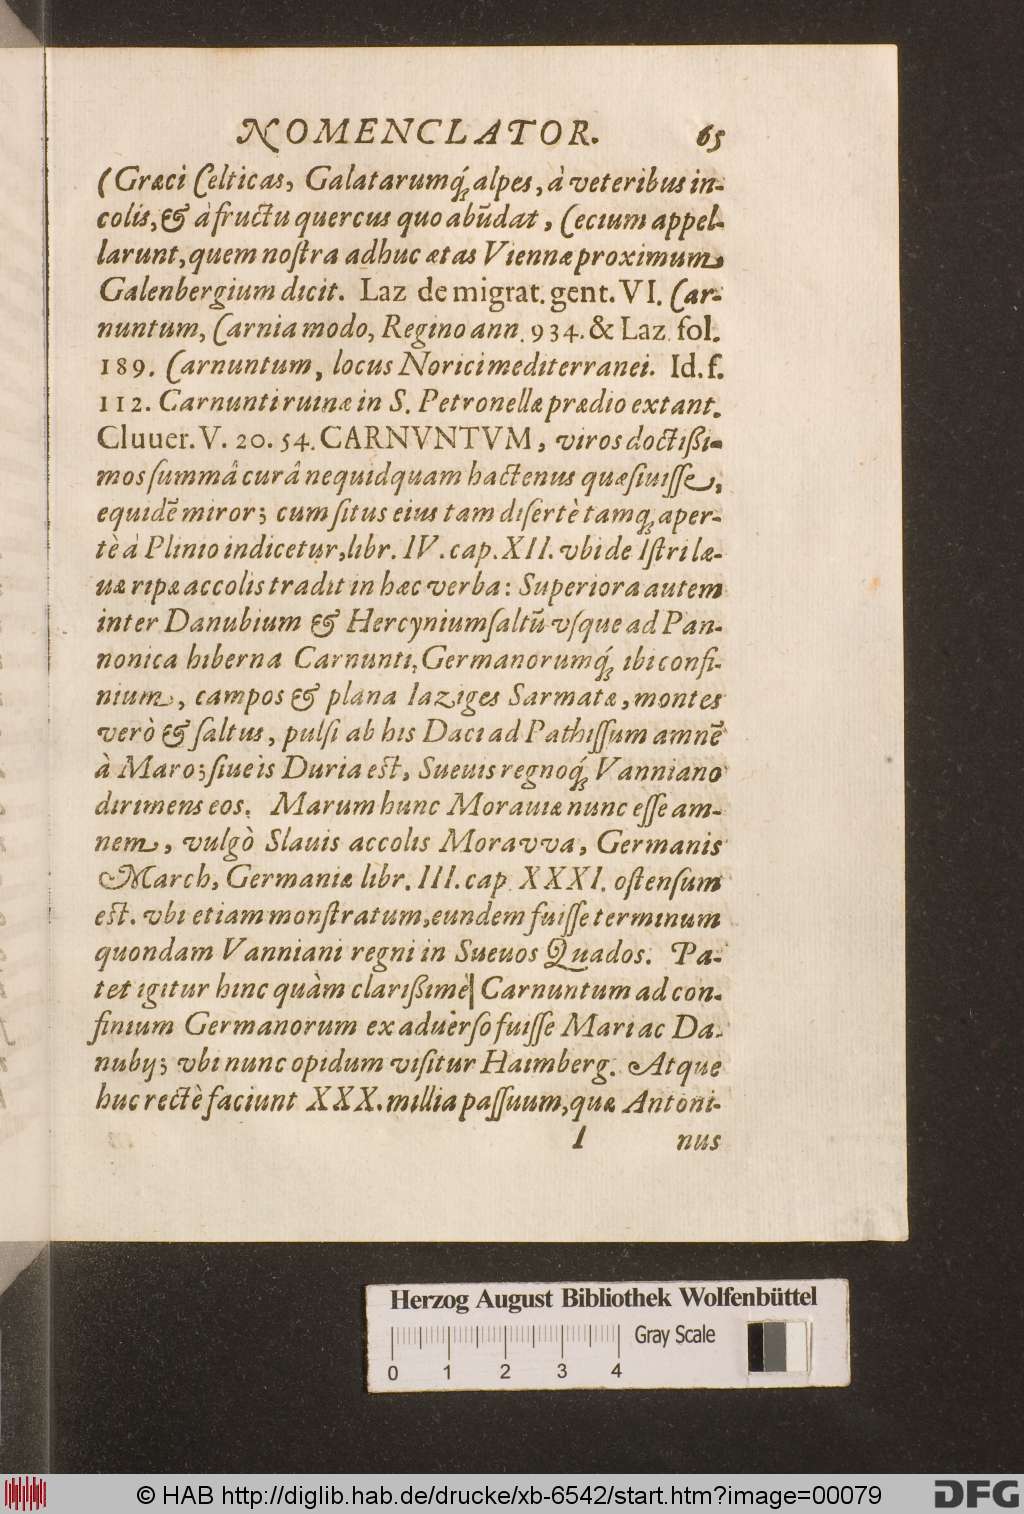 NOMENCLATOR. 65
(Græci Celticas, Galatarumq́; alpes, à veteribus in-
colis, & à fructu quercus quo abūdat, Cecium appel-
larunt, quem nostra adhuc ætas Viennæ proximum
Galenbergium dicit. Laz de migrat. gent. VI. Car-
nuntum, Carnia modo, Regino ann. 934. & Laz. fol.
189. Carnuntum, locus Norici mediterranei. Id. f.
112. Carnunti ruinæ in S. Petronellæ prædio extant.
Cluuer. V. 20. 54. CARNVNTVM, viros doctißi-
mos summâ curâ nequidquam hactenus quæsiuisse,
equidē miror; cum situs eius tam disertè tamq; aper-
tè à Plinio indicetur, libr. IV. cap. XII. vbi de Istri læ-
uæ ripæ accolis tradit in hæc verba: Superiora autem
inter Danubium & Hercynium saltū vsque ad Pan-
nonica hiberna Carnunti, Germanorumq́; ibi confi-
nium, campos & plana Iaziges Sarmatæ, montes
verò & saltus, pulsi ab his Daci ad Pathissum amnē
à Maro; siue is Duria est, Sueuis regnoq́; Vanniano
dirimens eos. Marum hunc Morauiæ nunc esse am-
nem, vulgò Slauis accolis Moravva, Germanis
March, Germaniæ libr. III. cap. XXXI. ostensum
est. vbi etiam monstratum, eundem fuisse terminum
quondam Vanniani regni in Sueuos Quados. Pa-
tet igitur hinc quàm clarißimè| Carnuntum ad con-
finium Germanorum ex aduerso fuisse Mari ac Da-
nubij; vbi nunc opidum visitur Haimberg. Atque
huc rectè faciunt XXX. millia passuum, quæ Antoni-
I nus
Herzog August Bibliothek Wolfenbüttel
Gray Scale
0 1 2 3 4
© HAB http://diglib.hab.de/drucke/xb-6542/start.htm?image=00079 DFG